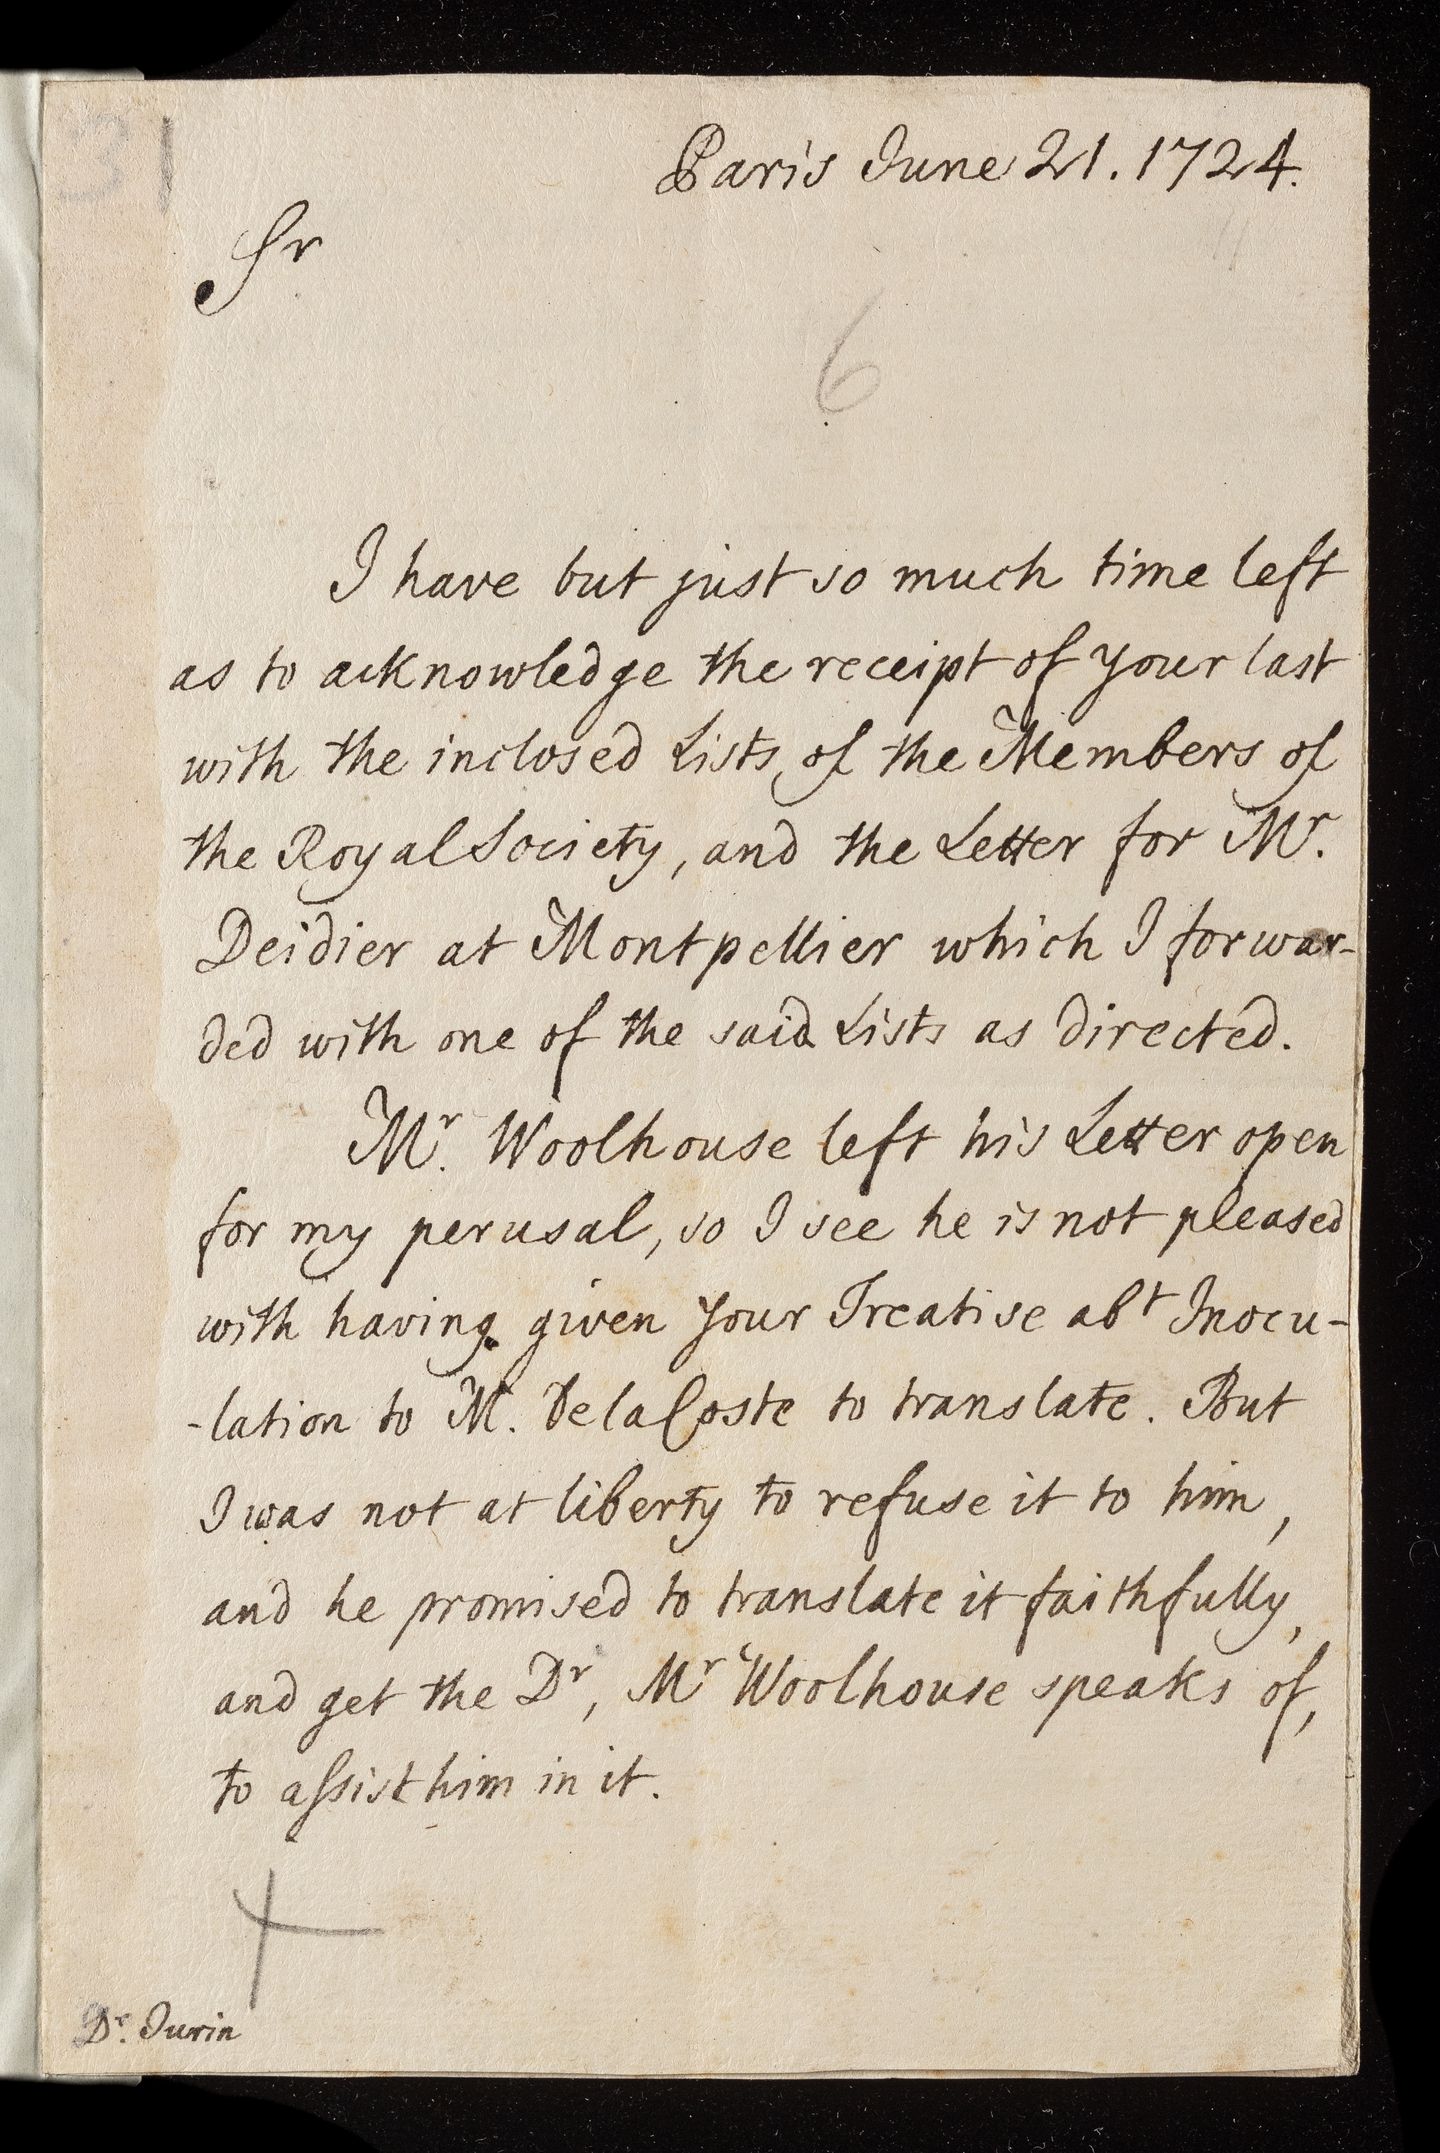 31
Paris June 21. 1724.
Sr
6
I have but just so much time left
as to acknowledge the receipt of your last
with the inclosed Lists, of the Members of
the Royal Society, and the Letter for Mr.
Deidier at Montpellier which I forwar-
ded with one of the said Lists as directed.
Mr. Woolhouse left his Letter open
for my perusal, so I see he is not pleased
with having given your Treatise abt Inocu-
-lation to M. De la Coste to translate. But
I was not at liberty to refuse it to him,
and he promised to translate it faithfully,
and get the Dr, Mr Woolhouse speaks of,
to assist him in it.
Dr. Jurin